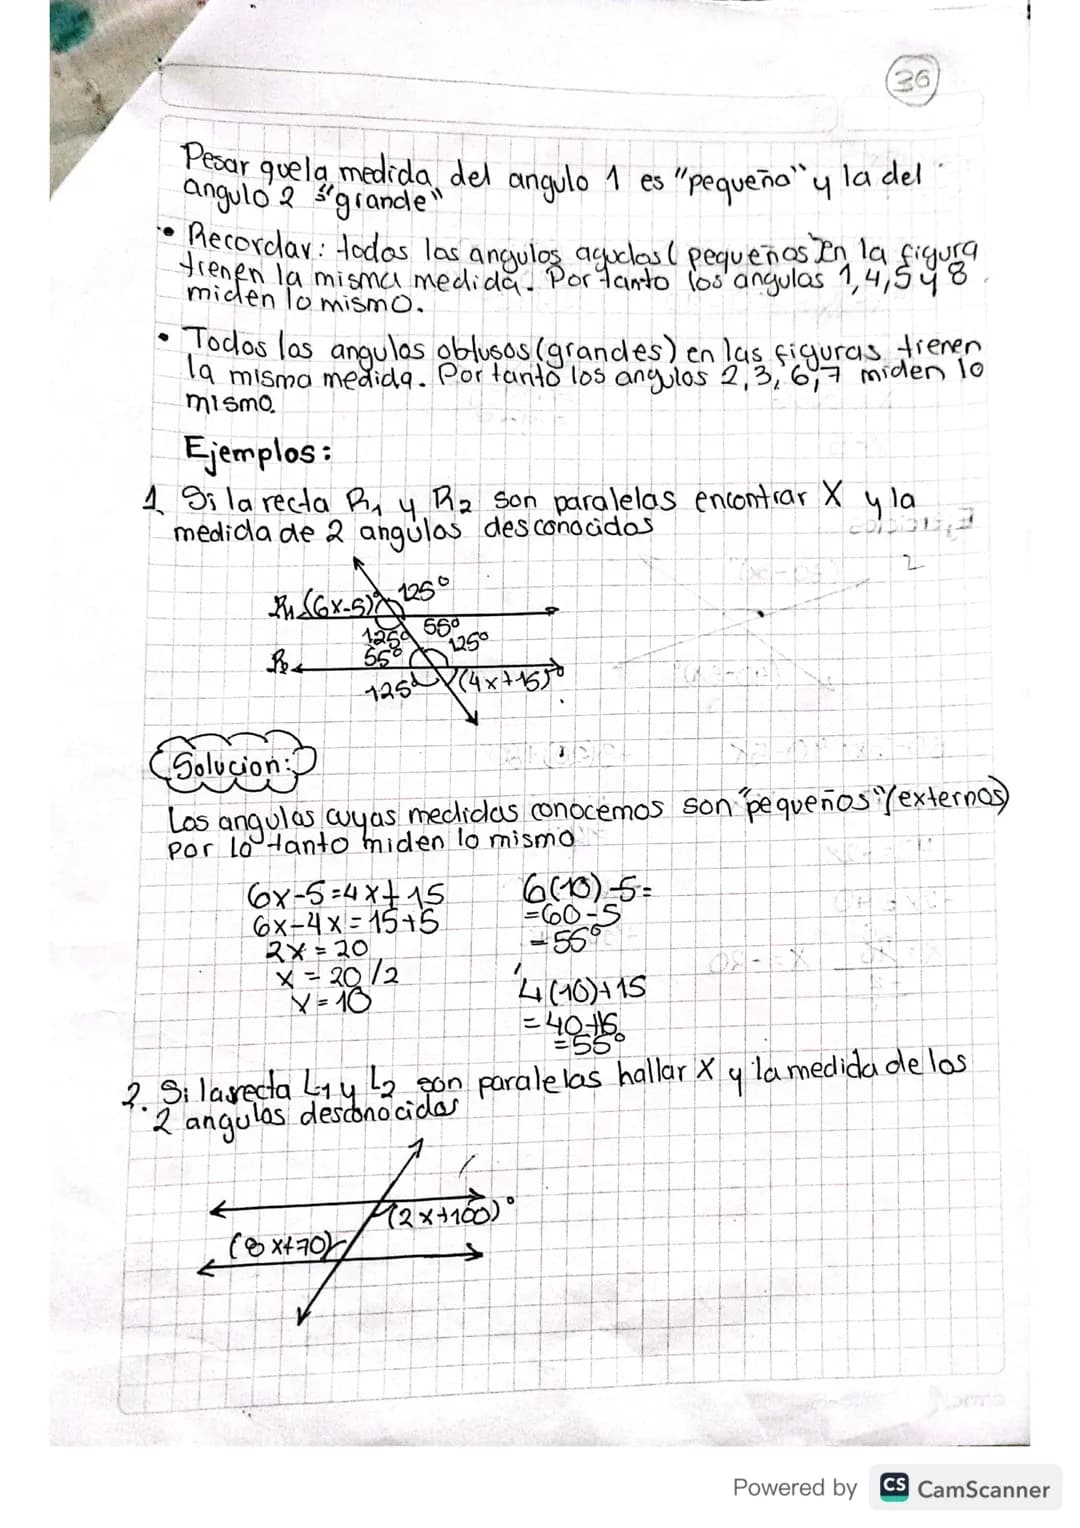 36
Pesar que la medida del angulo 1 es "pequeño" y la del
angulo 2 s "grande"
• Recordar: todos los angulos agudos (pequeños) en la figura
tienen la misma medida. Por tanto los angulos 1,4,5 y 8
miden lo mismo.
• Todos los angulos obtusos (grandes) en las figuras tienen
la misma medida. Por tanto los angulos 2,3,6,7 miden lo
mismo.
Ejemplos:
1 Si la recta R1 y R2 son paralelas encontrar X y la
medida de 2 angulos desconocidos
R1 (6x-5)° 125°
125° 55°
R2 55° 125°
125° (4x+15)°
Solucion:
Los angulos cuyas medidas conocemos son "pequeños" (externos)
por lo tanto miden lo mismo
6x-5=4x+15
6x-4x=15+5
2x=20
x=20/2
x=10
6(10)-5=
=60-5
=55°
4(10)+15
=40+15
=55°
2. Si la recta L1 y L2 son paralelas hallar X y la medida de los
2 angulos desconocidos
(2x+100)°
(8x+70)
Powered by CS CamScanner